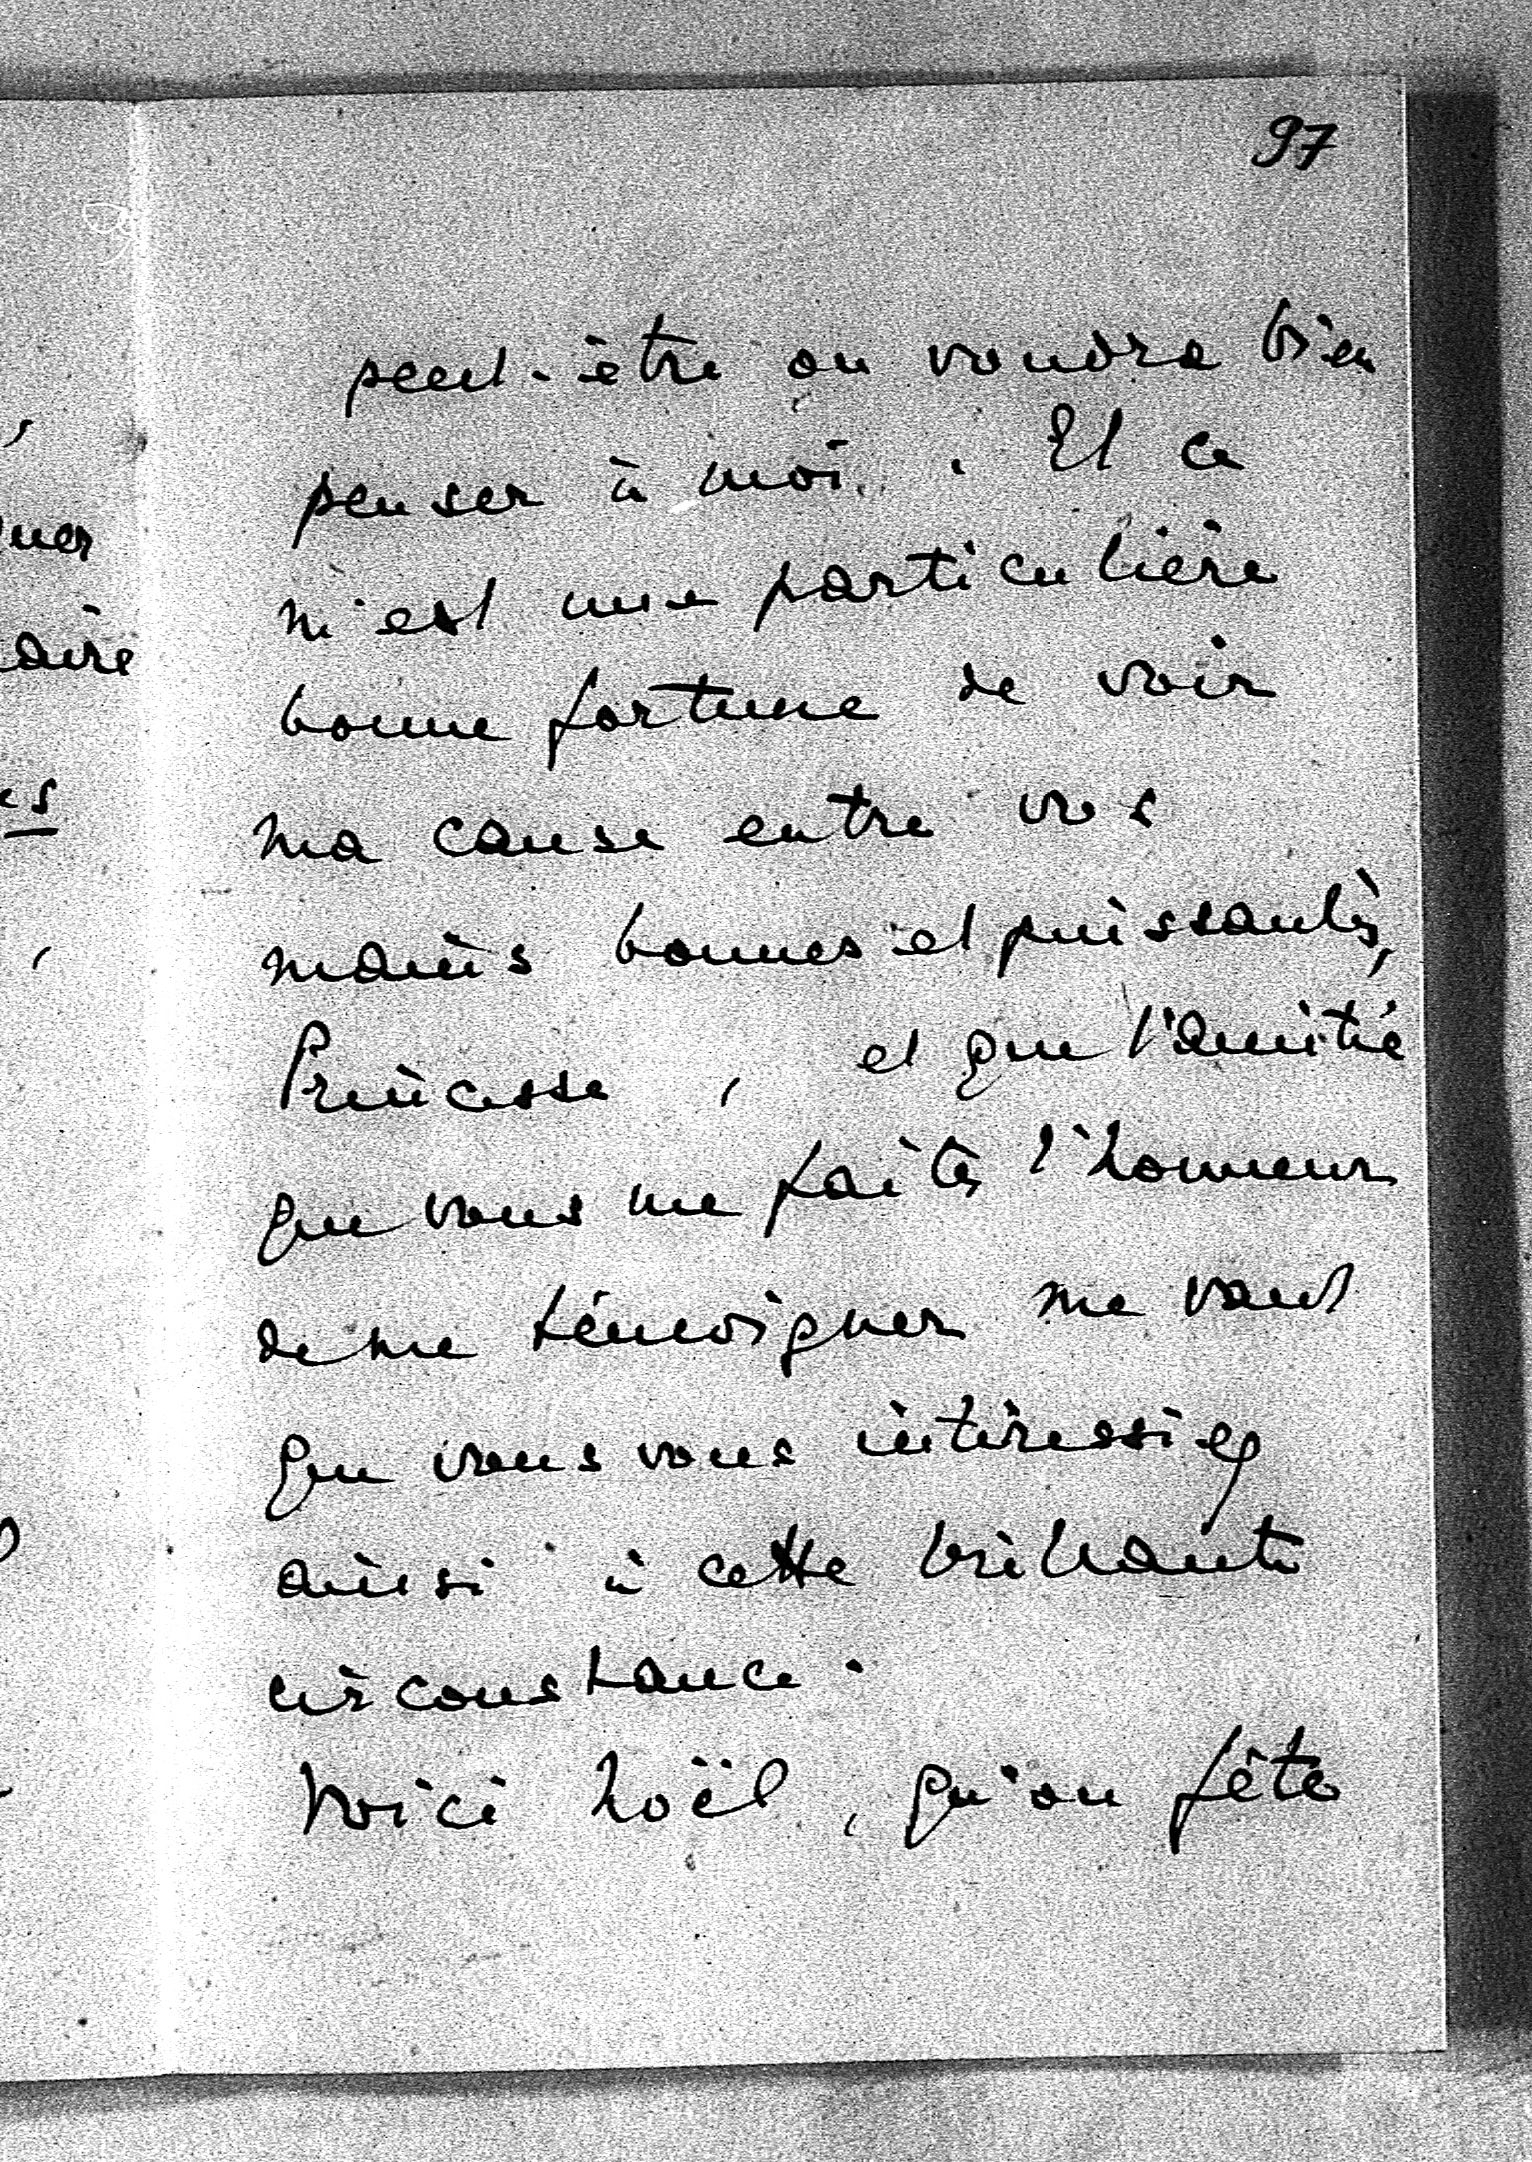 97
peut-être on voudra bien
penser à moi. Et ce
m'est une particulière
bonne fortune de voir
ma cause entre vos
mains bonnes et puissantes,
Princesse, et que l'amitié
que vous me faites l'honneur
de me témoigner me vaut
que vous vous intéressiez
ainsi à cette brillante
circonstance.
Voici Noël, qu'on fête